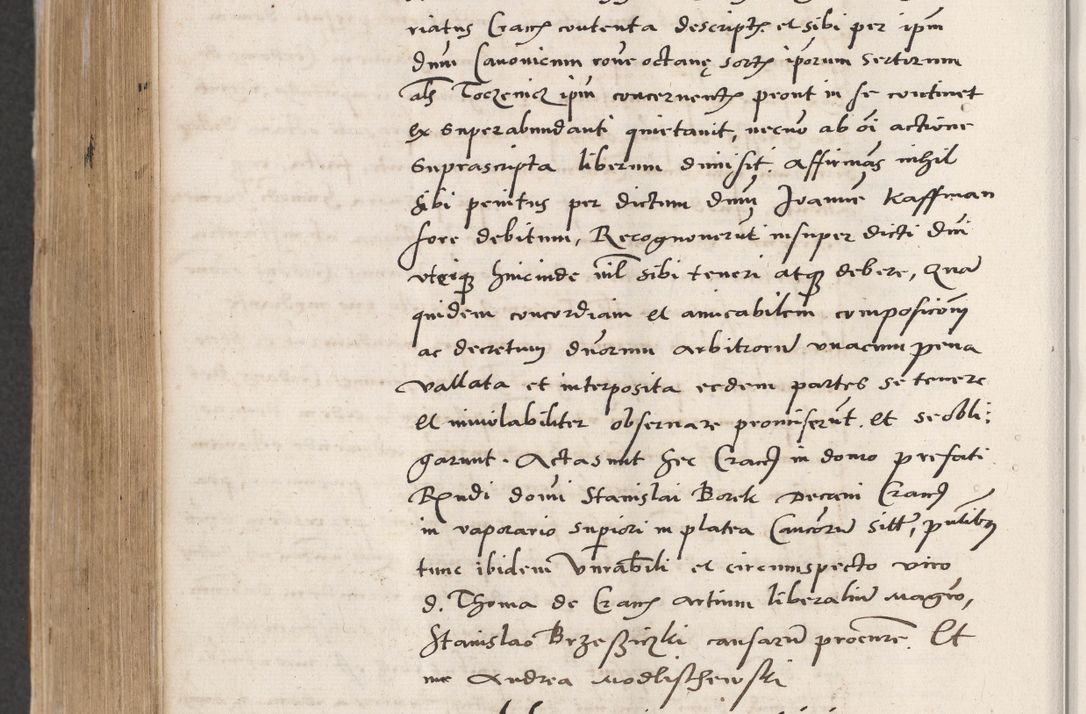 riatus Cracoviensis contenta descriptam et sibi per ipm
dnm Canonicum rone octavę sortis iporum sertorum
als Toczenie ipm concernentis prout in se continet
ex superabundanti quietavit, necno ab oi actione
suprascripta liberum dimisit affirmans nihil
sibi penitus per dictum dnm Joannem Kaffman
fore debitum, Recognoverut insuper dicti dni
utrique hincinde nil sibi teneri atque debere, Qua
quidem concordiam et amicabilem compositionem
ac decretum duorum arbitroru unacum pena
vallata et interposita eedem partes se tenere
et inviolabiliter observare promiserut. Et se obli:
garunt. Acta sunt hec Crac in domo prefati
Rndi domi Stanislai Borek Decani Crac
in vaporario supiori in platea Canonicoru sitt, pntibus
tunc ibidem Vnrabili et circumspecto viro
d. Thoma de Crac artium liberaliu magro,
Stanislao Brzeziczki causaru procure. Et
me Andrea Modlischewski